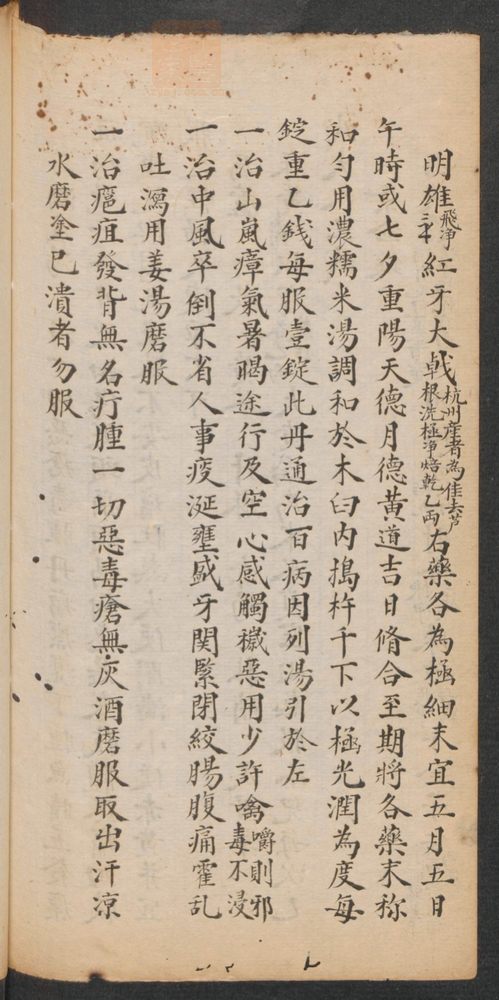 明雄飛净三錢紅牙大戟杭州産者為佳去芦根洗極净焙乾乙両右藥各為極細末宜五月五日
午時或七夕重陽天德月德黄道吉日脩合至期將各藥末称
和匀用濃糯米湯調和於木臼内搗杵千下以極光潤為度每
錠重乙錢每服壹錠此丹通治百病因列湯引於左
一治山嵐瘴氣暑暍途行及空心感觸穢惡用少許噙嚼則邪毒不浸
一治中風卒倒不省人事疫涎壅盛牙関緊閉絞腸腹痛霍乱
吐瀉用姜湯磨服
一治癍疽發背無名疔腫一切惡毒瘡無灰酒磨服取出汗凉
水磨塗已潰者勿服